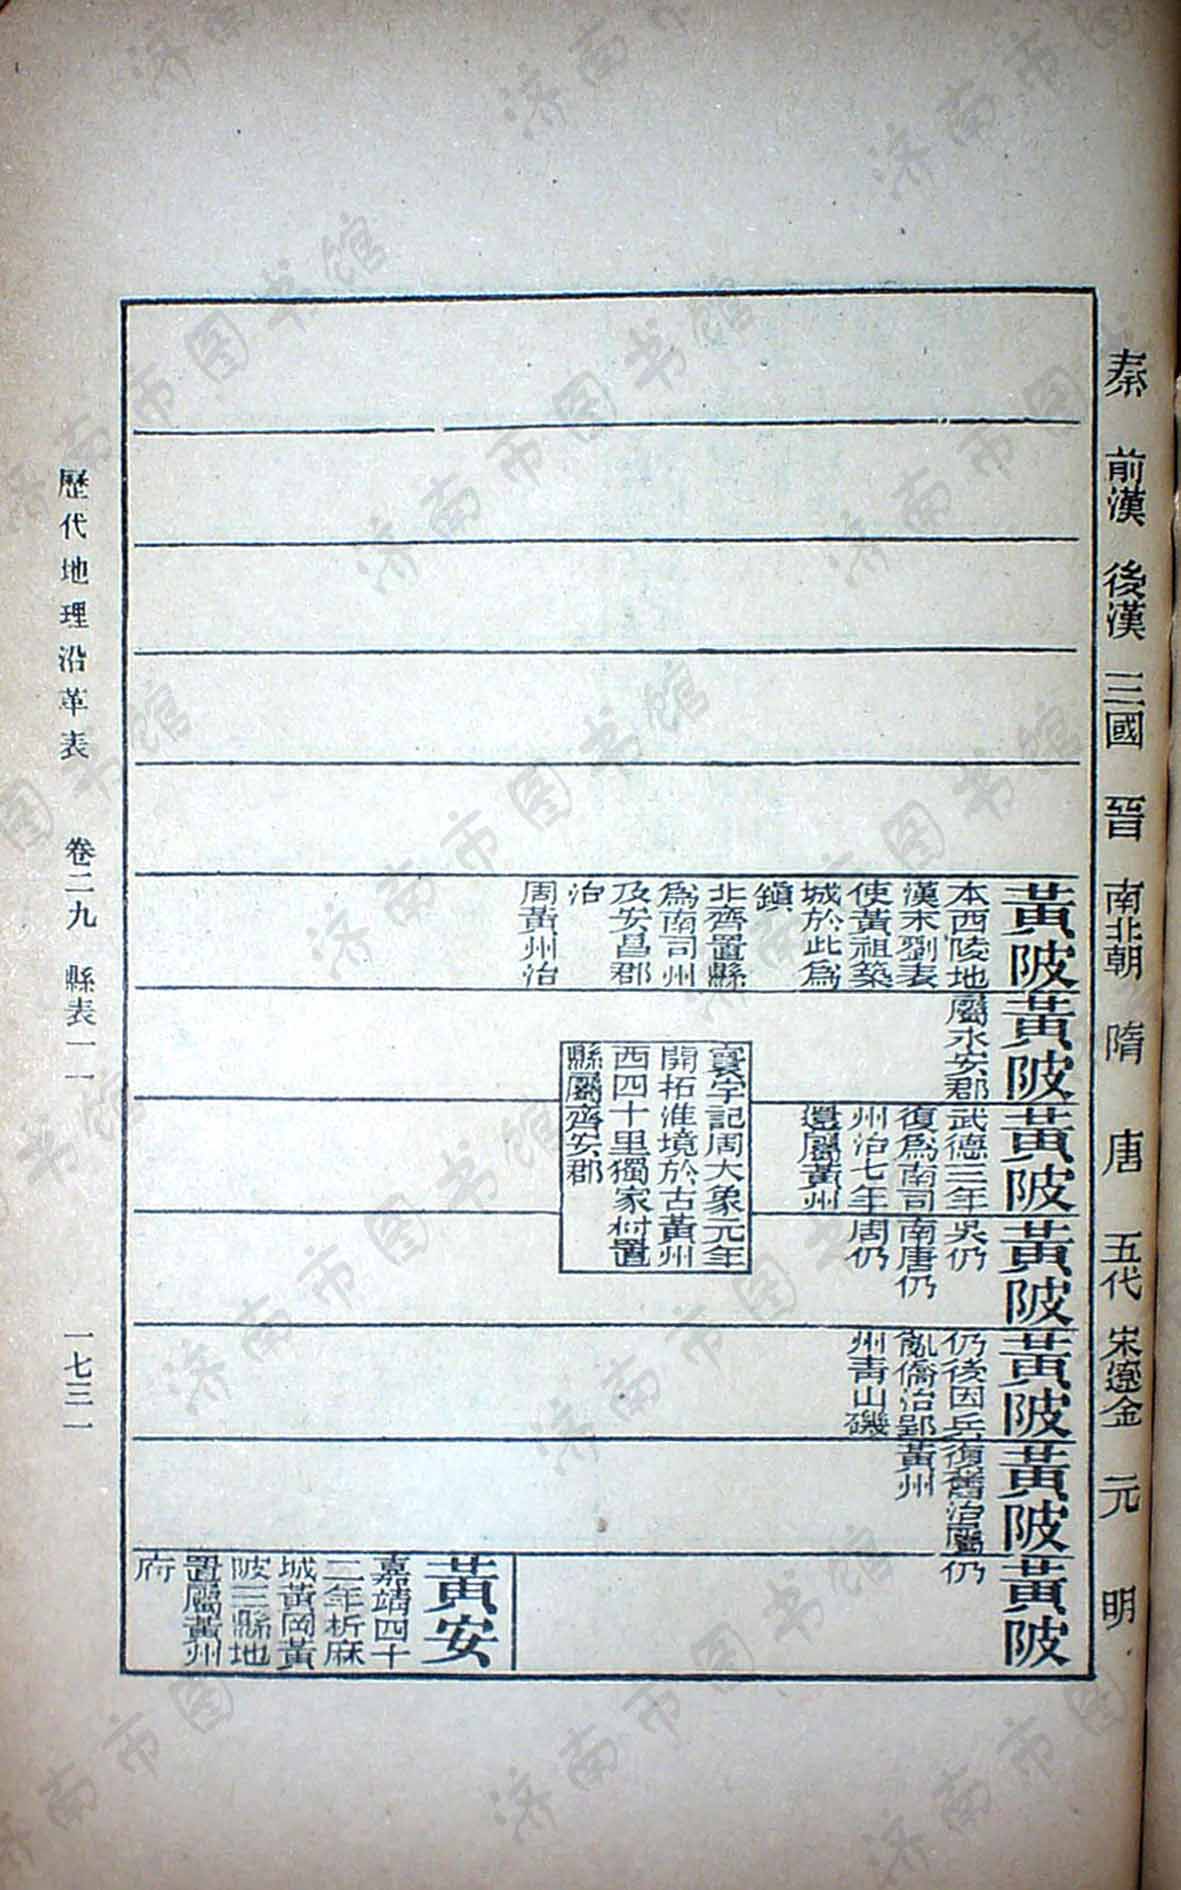 秦 前漢 後漢 三國 晉 南北朝 隋 唐 五代 宋遼金 元 明
黃陂
本西陵地
漢末劉表
使黃祖築
城於此爲
鎮
北齊置縣
爲南司州
及安昌郡
治
周黃州治
黃陂
屬永安郡
寰宇記周大象元年
開拓淮境於古黃州
西四十里獨家村置
縣屬齊安郡
黃陂
武德三年
復爲南司
州治七年
還屬黃州
黃陂
吳仍
南唐仍
周仍
黃陂
仍後因兵
亂僑治鄂
州青山磯
黃陂
復舊治屬
黃州
黃陂
仍
黃安
嘉靖四十
二年析麻
城黃岡黃
陂三縣地
置屬黃州
府
歷代地理沿革表 卷二九 縣表一一 一七三一
济南市图书馆